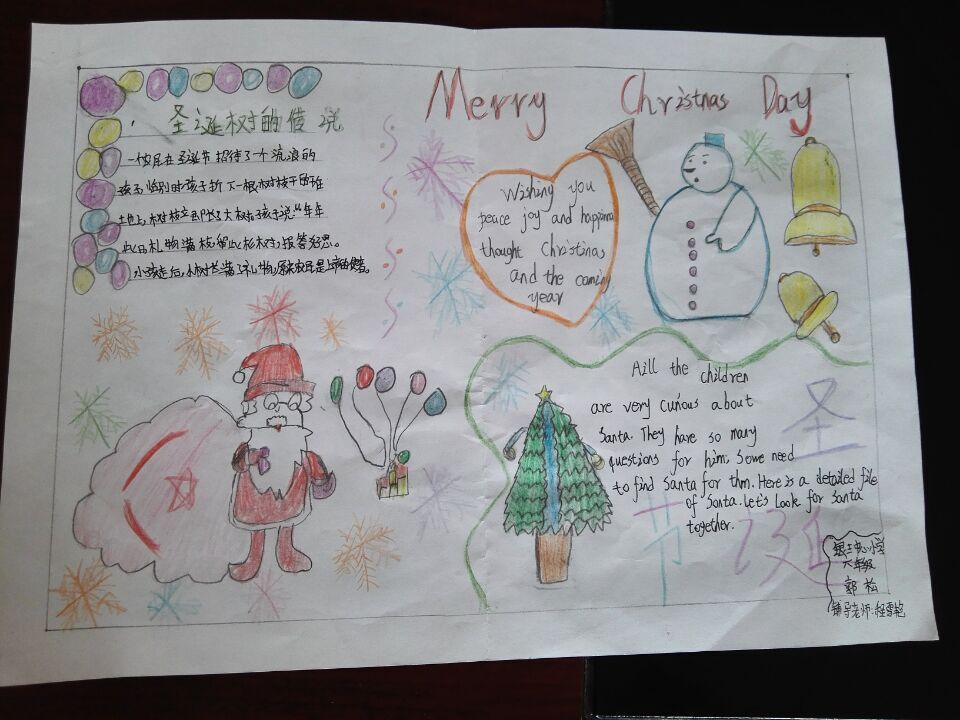 圣诞树的传说
一农民在圣诞节招待了个流浪的
孩子临别时孩子折下一根树枝
土地上树枝立即长大树,孩子说"年年
此日礼物满枝留此杉树,报答好恩。
小孩走后,小树长满了礼物,原来
Merry Christmas Day
Wishing you
peace joy and happine
thought Christmas
and the coming
year
Aill the children
are very curious about
Santa. They have so many
questions for him. Some need
to find Santa for thm. Here is a detailed file
of Santa. Let's Look for Santa
together.
圣
节 诞
中心小学
六年级
郭松
辅导老师:程雪艳